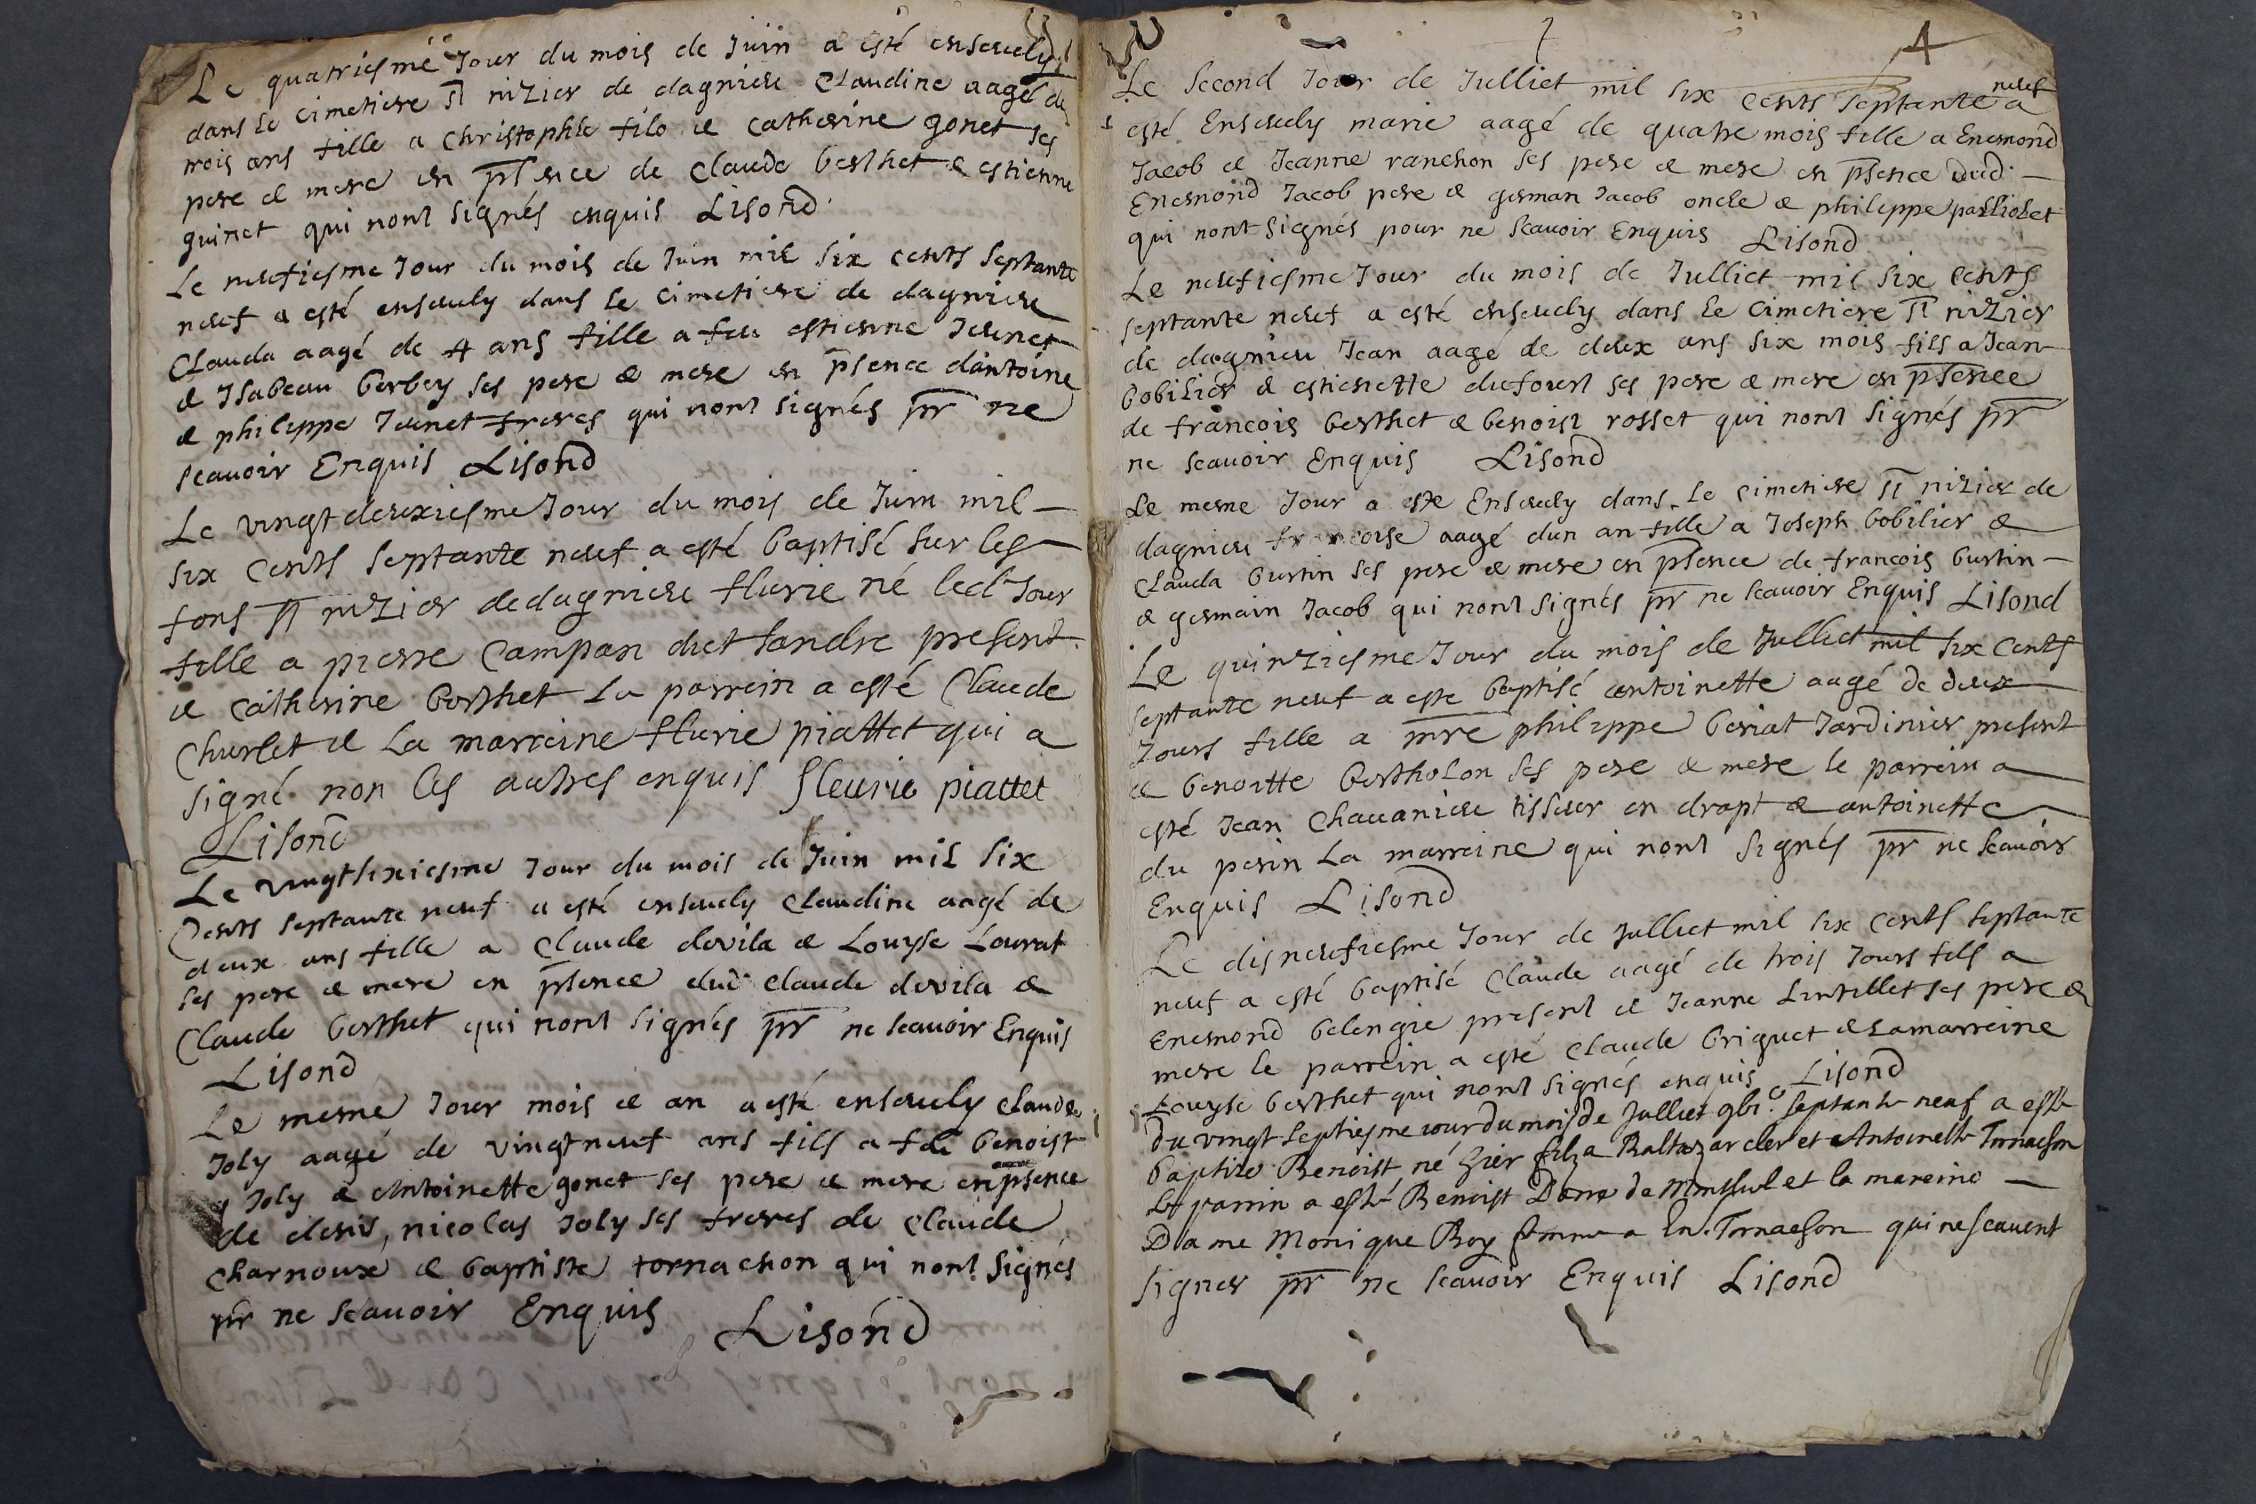 Le quatriesme Jour du mois de Juin a esté enseuely
dans le cimetiere St nizier de dagnieu Claudine aagé de
trois ans fille a Christophle filo et catherine gonet ses
pere et mere en pñce de Claude berthet & estienne
guinet qui nont signés enquis Lisond
Le neufiesme Jour du mois de Juin mil six cents septante
neuf a esté enseuely dans le cimetiere de dagnieu
Clauda aagé de 4 ans fille a feu estienne Juenet
& Isabeau berbey ses pere & mere en psence dantoine
& philippe Juenet freres qui nont signés pr ne
scauoir Enquis Lisond
Le vingt deuxiesme Jour du mois de Juin mil
six cents septante neuf a esté baptisé sur les
fons St nizier de dagnieu flurie né led Jour
fille a pierre Campan dict landre present
et catherine berthet Le parrein a esté Claude
Churlet et La marreine flurie piattet qui a
signé non les autres enquis fleurie piattet
Lisond
Le vingtsixiesme Jour du mois de Juin mil six
Cents septante neuf a esté enseuely Claudine aagé de
deux ans fille a Claude devila & Louyse Lourat
ses pere et mere en psence dud Claude devila &
Claude berthet qui nont signés pr ne scauoir Enquis
Lisond
Le mesme Jour mois et an a esté enseuely Claude
Joly aagé de vingt neuf ans fils a feu benoist
Joly & Antoinette gonet ses pere et mere en psence
de denis, nicolas Joly ses freres de Claude
Charnoux et baptiste tornachon qui nont signés
pr ne scauoir Enquis Lisond
4
Le second Jour de Julliet mil six cents septante neuf a
esté Enseuely marie aagé de quatre mois fille a Enemond
Jacob et Jeanne ranchon ses pere et mere en psence dud
Enemond Jacob pere & german Jacob oncle & philippe palliolet
qui nont signés pour ne scauoir Enquis Lisond
Le neufiesme Jour du mois de Julliet mil six cents
septante neuf a esté enseuely dans le cimetiere St nizier
de dagnieu Jean aagé de deux ans six mois fils a Jean
bobilier & estienette dufourt ses pere et mere en psence
de francois berthet & benoist rosset qui nont signés pr
ne scauoir Enquis Lisond
Le mesme Jour a este Enseuely dans le cimetiere St nizier de
dagnieu francoise aagé dun an fille a Joseph bobilier &
Clauda burtin ses pere & mere en psence de francois burtin
& germain Jacob qui nont signés pr ne scauoir Enquis Lisond
Le quinziesme Jour du mois de Julliet mil six cents
septante neuf a este baptisé antoinette aagé de deux
Jours fille a mre philippe beriat Jardinier present
et benoitte bertholon ses pere & mere le parrein a
esté Jean Chauanieu tisseur en drapt & antoinette
du perin La marreine qui nont signés pr ne scauoir
Enquis Lisond
Le disneufiesme Jour de Julliet mil six cents septante
neuf a esté baptisé Claude aagé de trois Jours fils a
enemond belengie present et Jeanne Lintillet ses pere &
mere le parrein a esté Claude briguet & La marreine
Louyse berthet qui nont signés enquis Lisond
Du vingt septiesme iour du mois de Julliet septante neuf a esté
baptizé Benoist né hier filz a Baltazar cler et Antoinette Tornachon
Le parrin a esté Benoist et la mareine
Dame Monique Roy femme a En. Tornachon qui ne scauent
signer pr ne scauoir Enquis Lisond